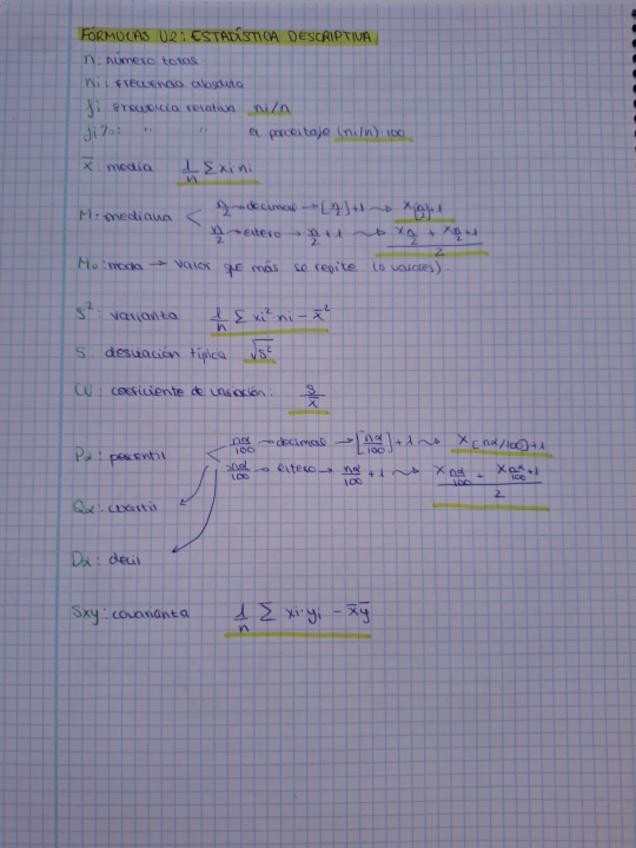 FÓRMULAS U2: ESTADÍSTICA DESCRIPTIVA
n: número total
ni: frecuencia absoluta
fi: frecuencia relativa ni/n
fi%: " " en porcentaje (ni/n)·100
x̄: media 1/n Σ xi ni
M: mediana < n/2 → decimal → [n/2]+1 ⤳ x[n/2]+1
n/2 → entero → n/2 + 1 ⤳ (x n/2 + x n/2+1)/2
Mo: moda → valor que más se repite (o valores).
S²: varianza 1/n Σ xi²·ni − x̄²
S: desviación típica √S²
CV: coeficiente de variación: S/x̄
Pα: percentil < nα/100 → decimal → [nα/100]+1 ⤳ x[nα/100]+1
nα/100 → entero → nα/100 + 1 ⤳ (x nα/100 + x nα/100+1)/2
Qα: cuartil
Dα: decil
Sxy: covarianza 1/n Σ xi·yi − x̄ȳ